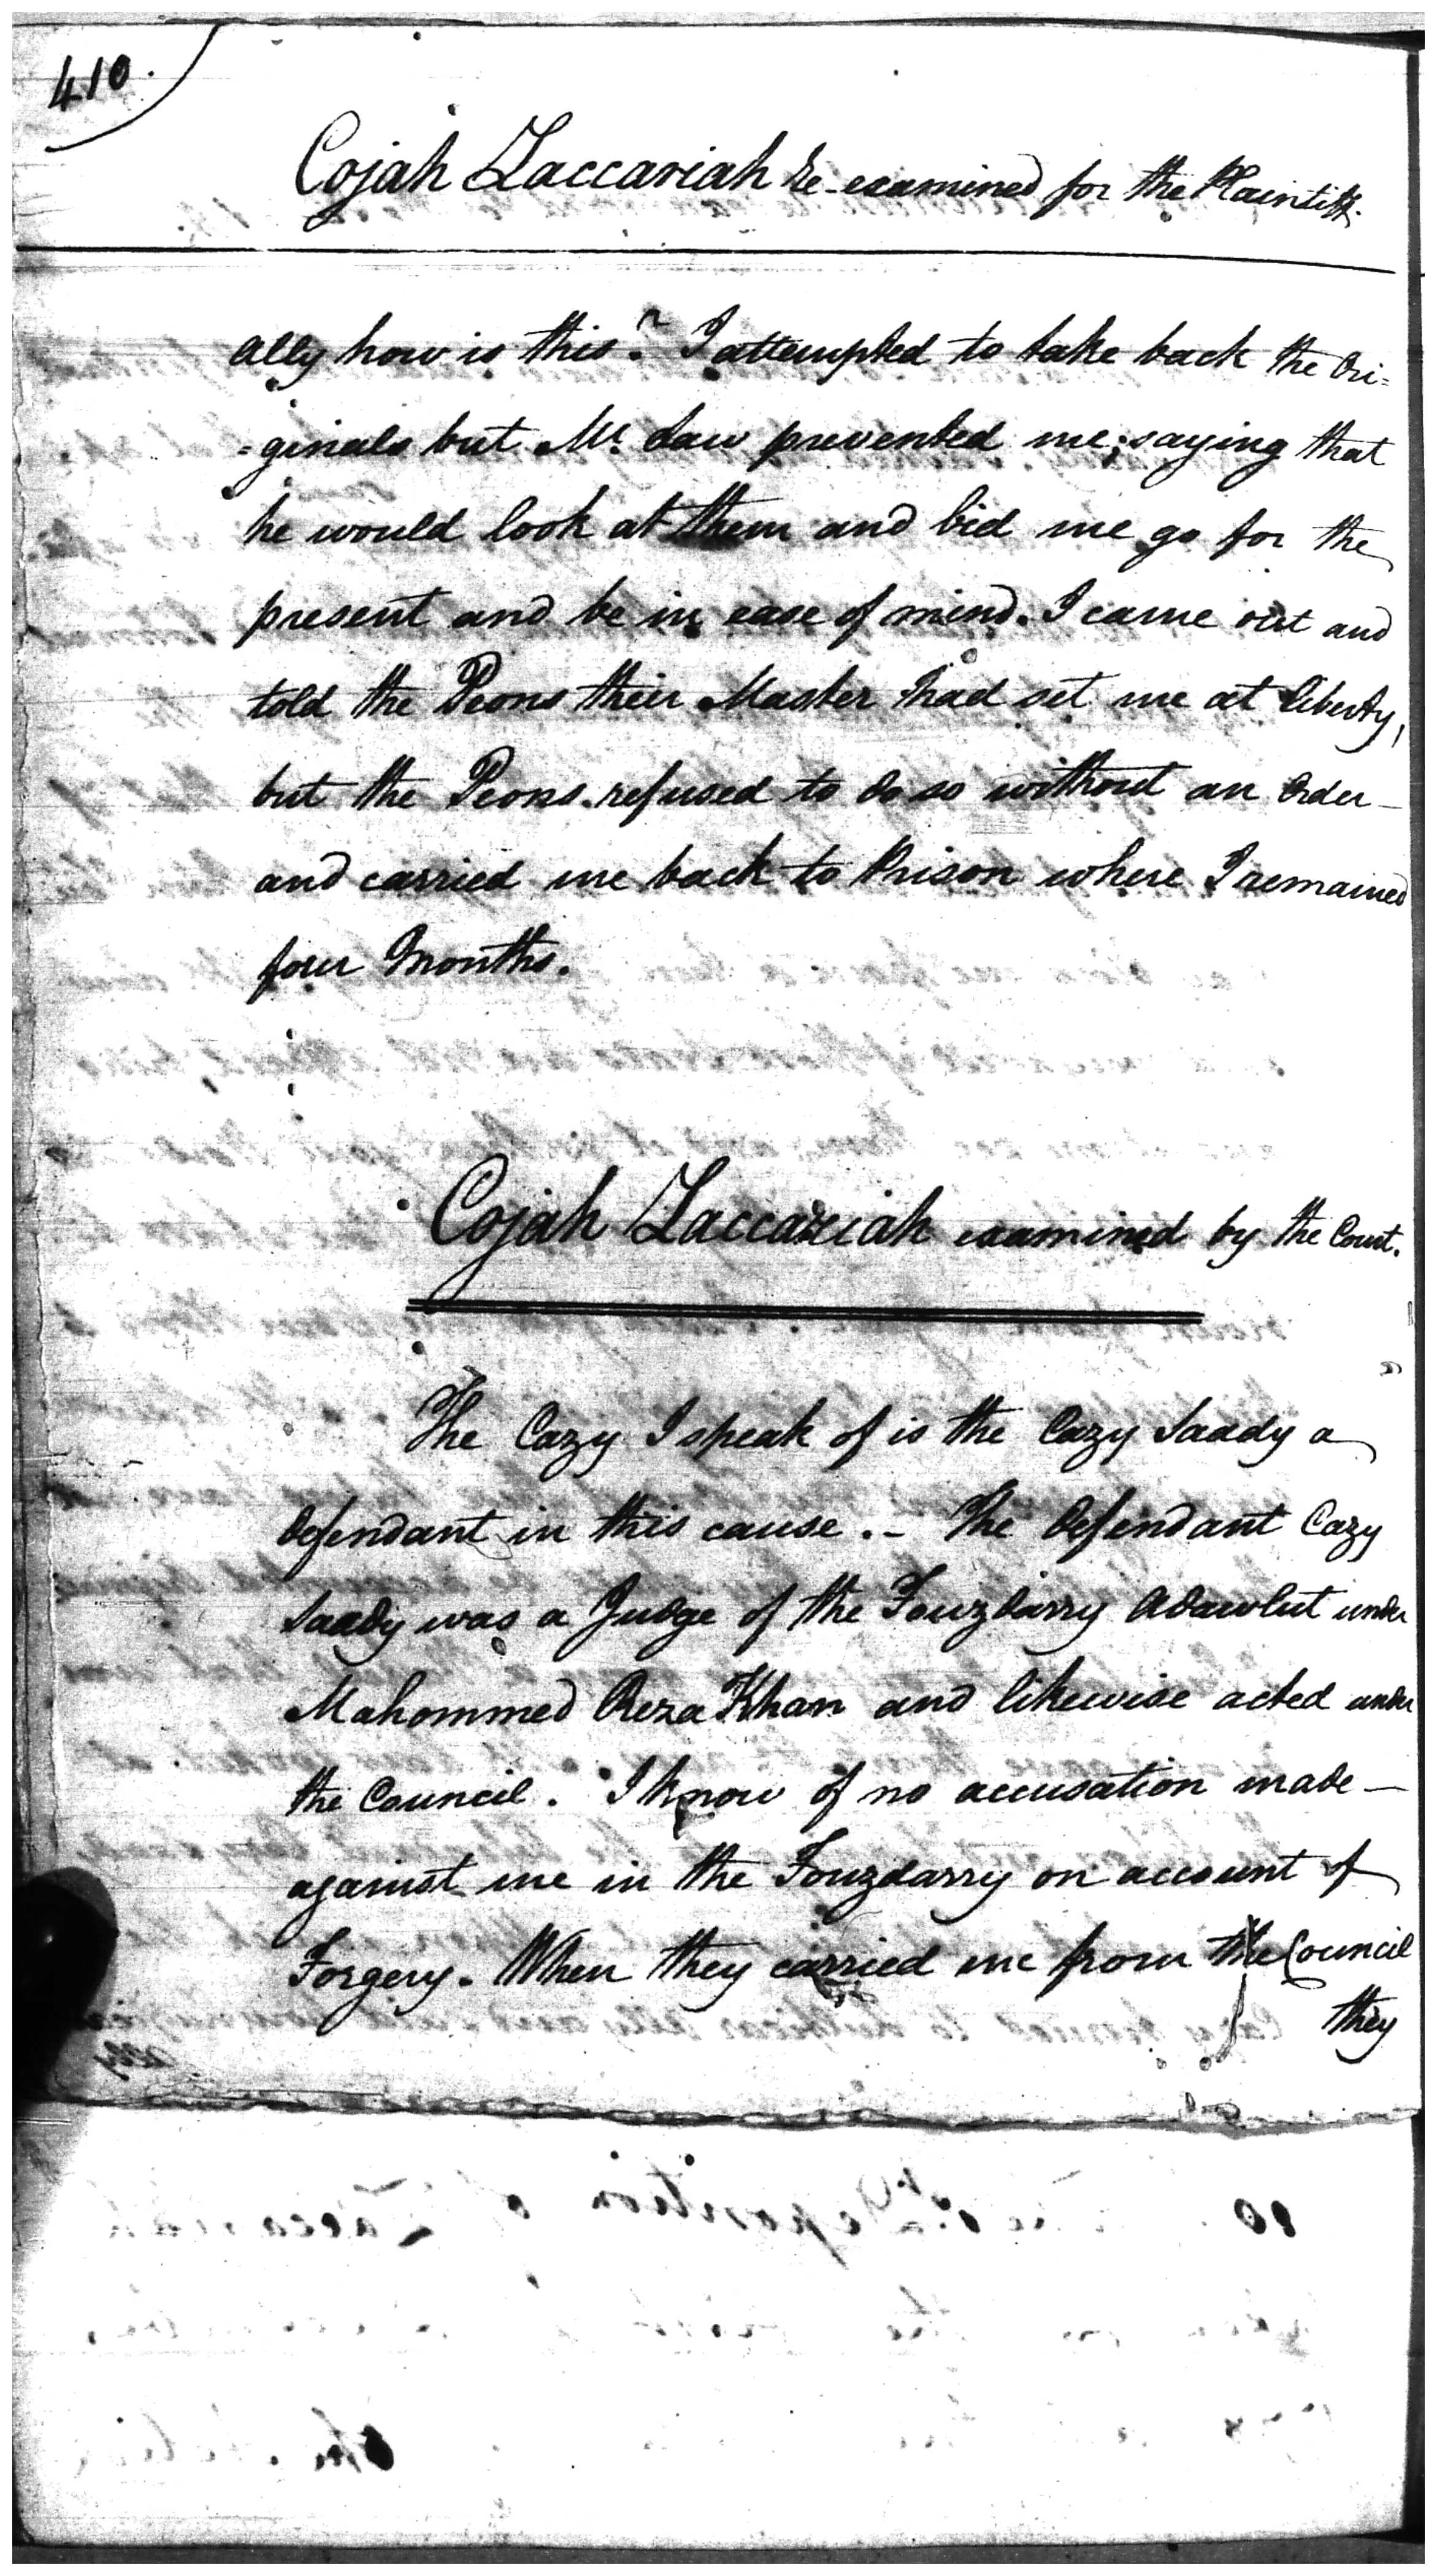 410.
Cojah Zaccariah Re-examined for the Plaintiff.
ally how is this? I attempted to take back the Ori=
=ginals but Mr. Law prevented me; saying that
he would look at them and bid me go for the
present and be in ease of mind. I came out and
told the Peons their Master had set me at liberty,
but the Peons refused to do so without an Order—
and carried me back to Prison where I remained
four Months.
Cojah Zaccariah examined by the Court.
The Cazy I speak of is the Cazy Saady a
Defendant in this cause.- The Defendant Cazy
Saady was a Judge of the Fouzdarry Adawlut under
Mahommed Reza Khan and likewise acted under
the Council. I know of no accusation made—
against me in the Fouzdarry on account of
Forgery. When they carried me from the Council
they